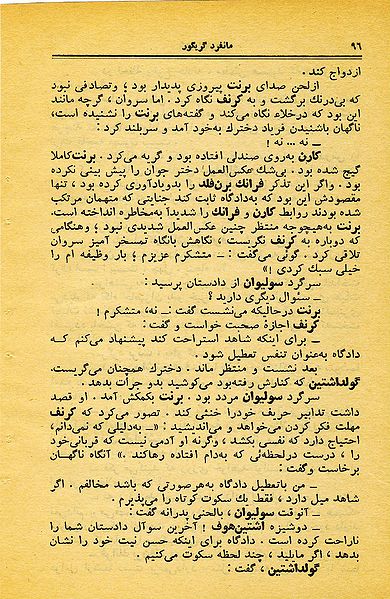 ۹۶
مانفرد گریگور
ازدواج کند .
ازلحن صدای برنت پیروزی پدیدار بود ؛ وتصادفی نبود
که بی‌درنگ برگشت و به کرنف نگاه کرد . اما سروان ، گرچه مانند
این بود که درخلاء نگاه می‌کند و گفته‌های برنت را نشنیده است،
ناگهان باشنیدن فریاد دخترک به‌خود آمد و سربلند کرد :
ــ نه ... نه !
کارن به‌روی صندلی افتاده بود و گریه می‌کرد . برنت‌کاملا
گیج شده بود . بی‌شک عکس‌العمل دختر جوان را پیش بینی نکرده
بود . واگر این تذکر فرانك برن‌فلد را بدویادآوری کرده بود ، تنها
مقصودش این بود که به‌دادگاه ثابت کند جنایتی که متهمان مرتکب
شده بودند روابط کارن و فرانك را شدیداً به‌مخاطره انداخته است.
برنت به‌هیچوجه منتظر چنین عکس‌العمل شدیدی نبود ؛ وهنگامی
که دوباره به کرنف نگریست ، نگاهش بانگاه تمسخر آمیز سروان
تلاقی کرد . گوئی می‌گفت: ــ متشکرم عزیزم ؛ بار وظیفه ام را
خیلی سبك کردی !»
سرگرد سولیوان از دادستان پرسید :
ــ سئوال دیگری دارید ؟
برنت درحالیکه می‌نشست گفت : ــ نه، متشکرم !
کرنف اجازهٔ صحبت خواست و گفت :
ــ برای اینکه شاهد استراحت کند پیشنهاد می‌کنم کــه
دادگاه به‌عنوان تنفس تعطیل شود .
بعد نشست و منتظر ماند . دخترك همچنان می‌گریست.
گولداشتین که کنارش رفته‌بود می‌کوشید بدو جرأت بدهد .
سرگرد سولیوان مردد بود . برنت بکمکش آمد . او قصد
داشت تدابیر حریف خودرا خنثی کند . تصور می‌کرد که کرنف
مهلت فکر کردن می‌خواهد و می‌اندیشید : «ــ به‌دلیلی که نمی‌دانم،
احتیاج دارد که نفسی بکشد ، وگرنه او آدمی نیست که قربانی‌خود
را ، درست درلحظه‌ئی که به‌دام افتاده رهاکند .» آنگاه ناگهــان
برخاست وگفت :
ــ من باتعطیل دادگاه به‌هرصورتی که باشد مخالفم . اگر
شاهد میل دارد ، فقط یك سکوت کوتاه را می‌پذیرم .
ــ آنوقت سولیوان ، بالحنی پدرانه گفت :
ــ دوشیزه اشتین‌هوف ! آخرین سوآل دادستان شما را
ناراحت کرده است . دادگاه برای اینکه حسن نیت خود را نشان
بدهد ، اگر مایلید ، چند لحظه سکوت می‌کنیم .
گولداشتین ، گفت :